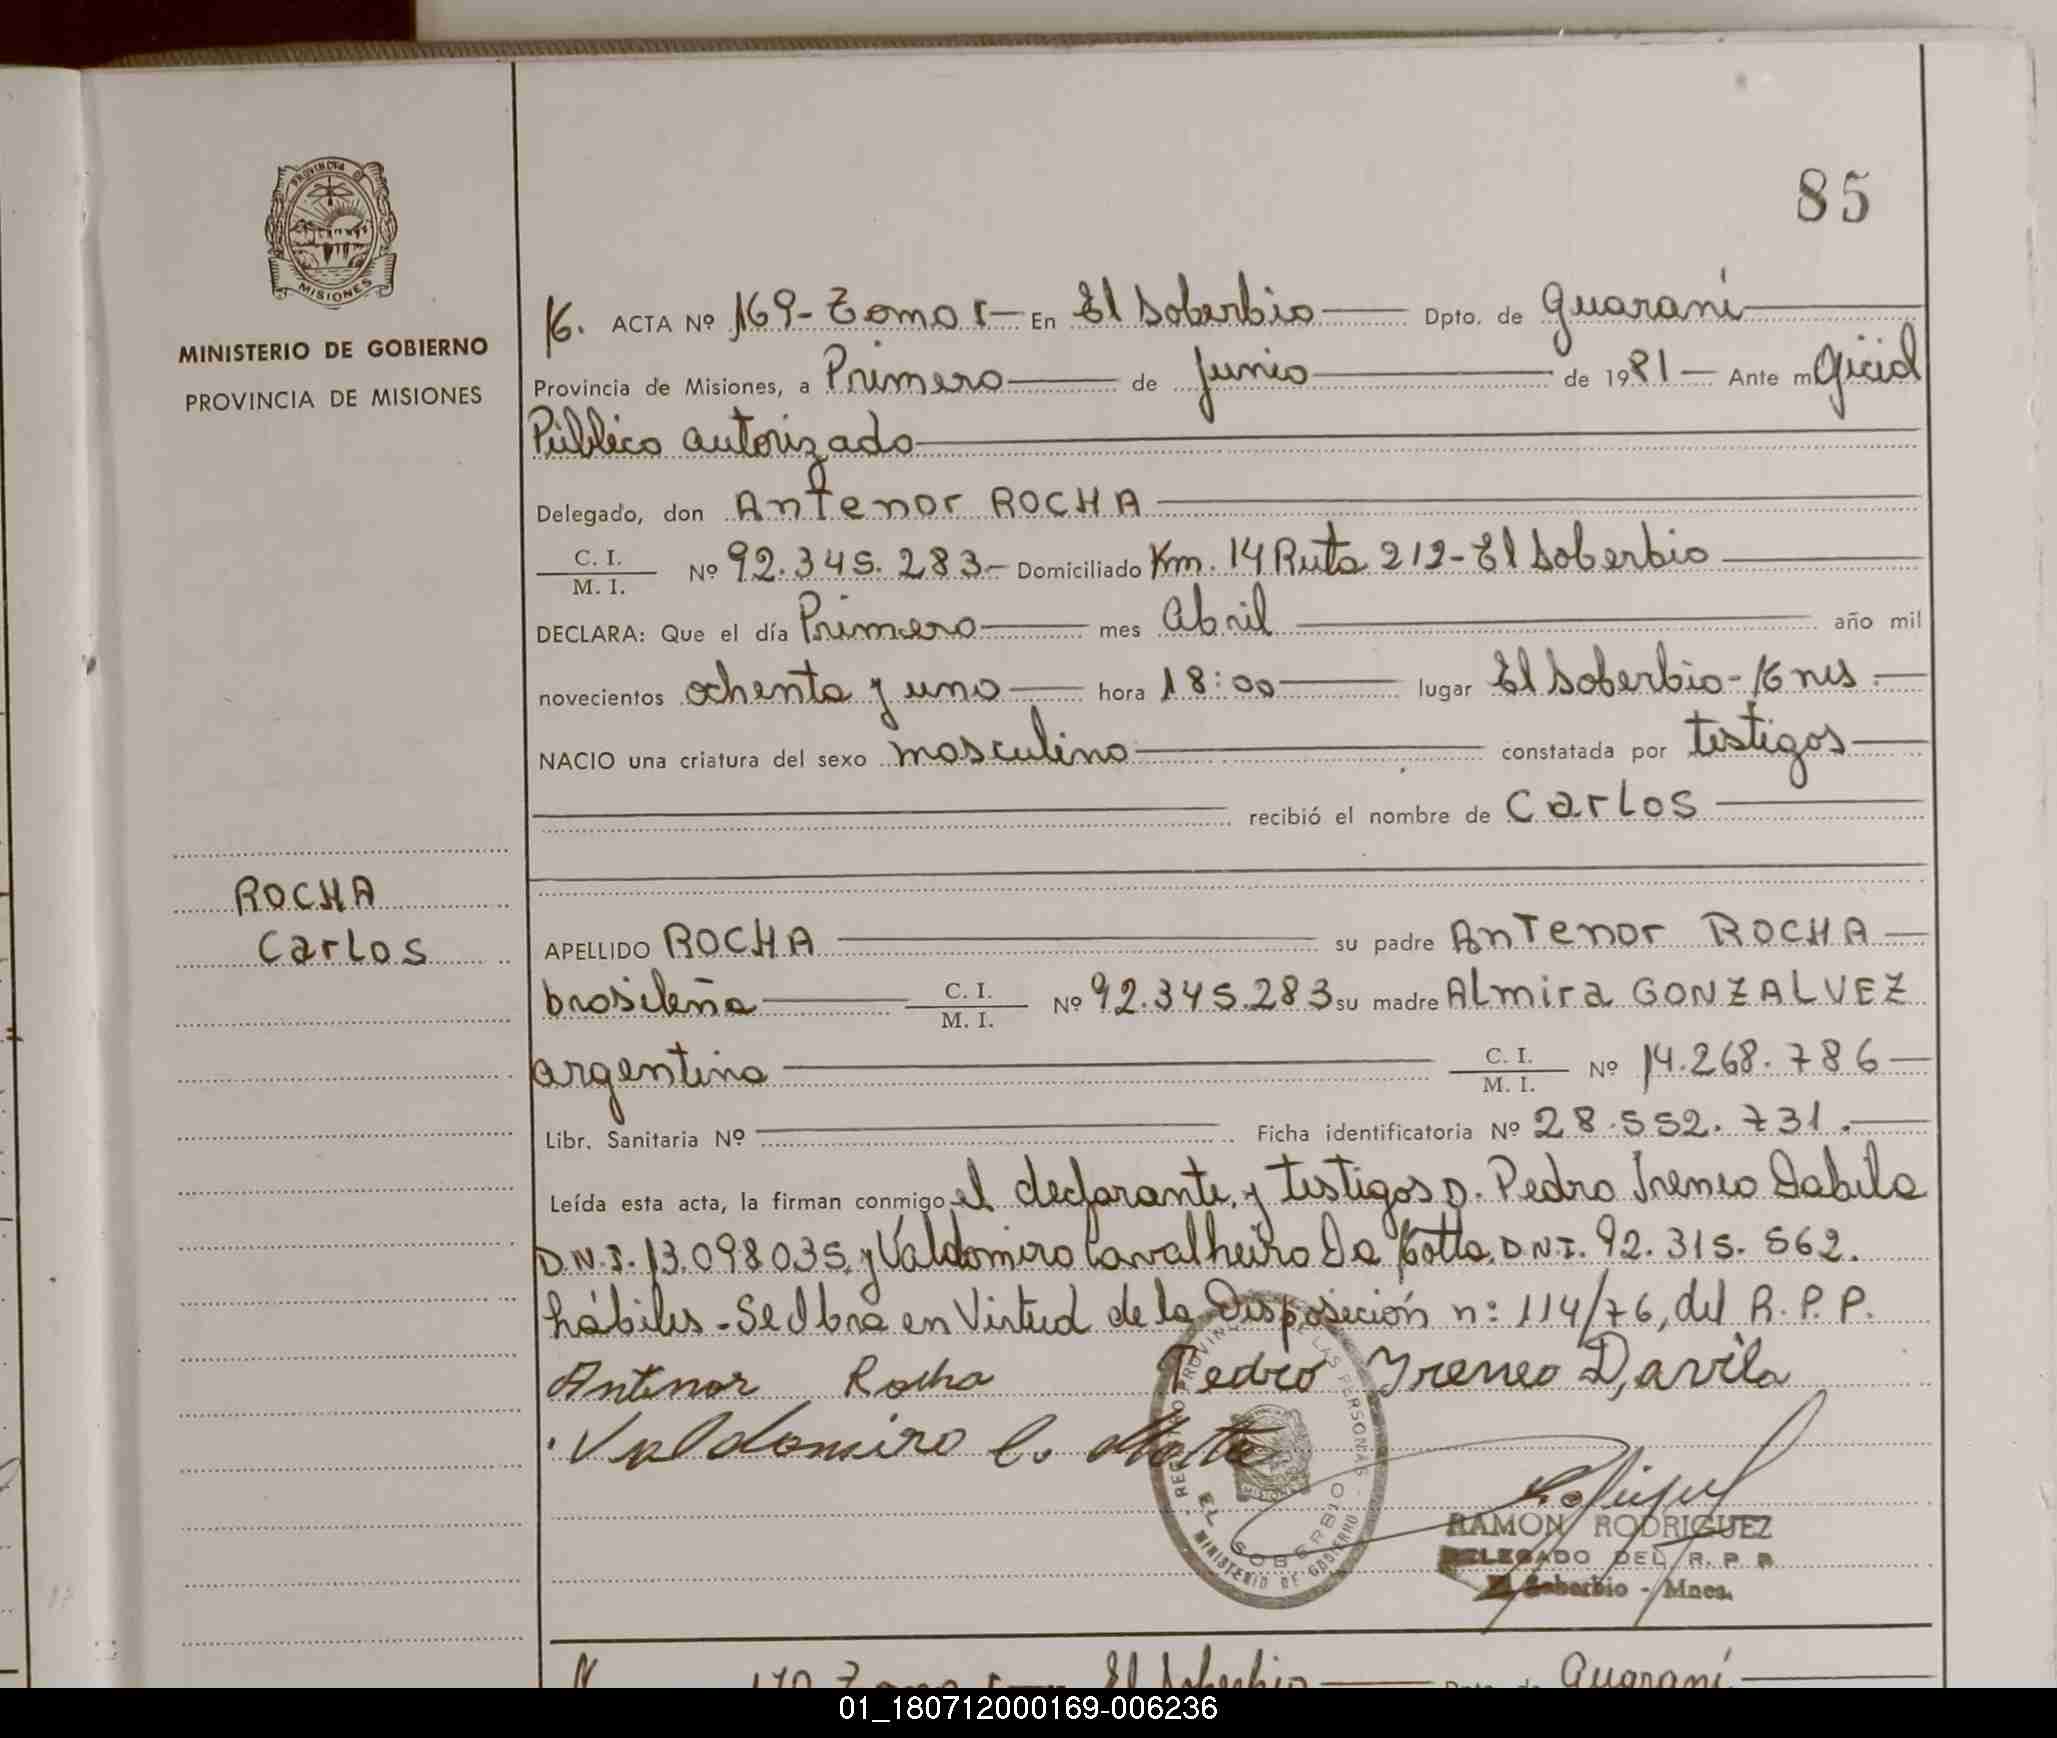 85
PROVINCIA DE
MISIONES
MINISTERIO DE GOBIERNO
PROVINCIA DE MISIONES
M. ACTA Nº 169- Tomo I- En El Soberbio Dpto. de Guaraní
Provincia de Misiones, a Primero de Junio de 1981 Ante mí Oficial
Público autorizado
Delegado, don Antenor ROCHA
C. I.
M. I. Nº 92.345.283- Domiciliado Km. 14 Ruta 212- El Soberbio
DECLARA: Que el día Primero mes Abril año mil
novecientos ochenta y uno hora 18:00 lugar El Soberbio- Mnes.
NACIO una criatura del sexo masculino constatada por testigos
recibió el nombre de Carlos
ROCHA
Carlos
APELLIDO ROCHA su padre Antenor ROCHA
brasileña C. I.
M. I. Nº 92.345.283 su madre Almira GONZALVEZ
argentina C. I.
M. I. Nº 14.268.786
Libr. Sanitaria Nº Ficha identificatoria Nº 28.552.731.
Leída esta acta, la firman conmigo el declarante, y testigos D. Pedro Ireneo Dabila
D.N.I. 13.098035, y Valdomiro Cavalheiro Da Motta, D.N.I. 92.315.562.
hábiles- Se labra en Virtud de la Disposición nº: 114/76, del R.P.P.
Antenor Rocha Pedro Ireneo Davila
Valdomiro C. Motta
REGISTRO PROVINCIAL DE LAS PERSONAS
EL SOBERBIO
MINISTERIO DE GOBIERNO
RAMON RODRIGUEZ
DELEGADO DEL R. P. P.
El Soberbio - Mnes.
170 Tomo I- El Soberbio Dpto. de Guaraní
01_180712000169-006236